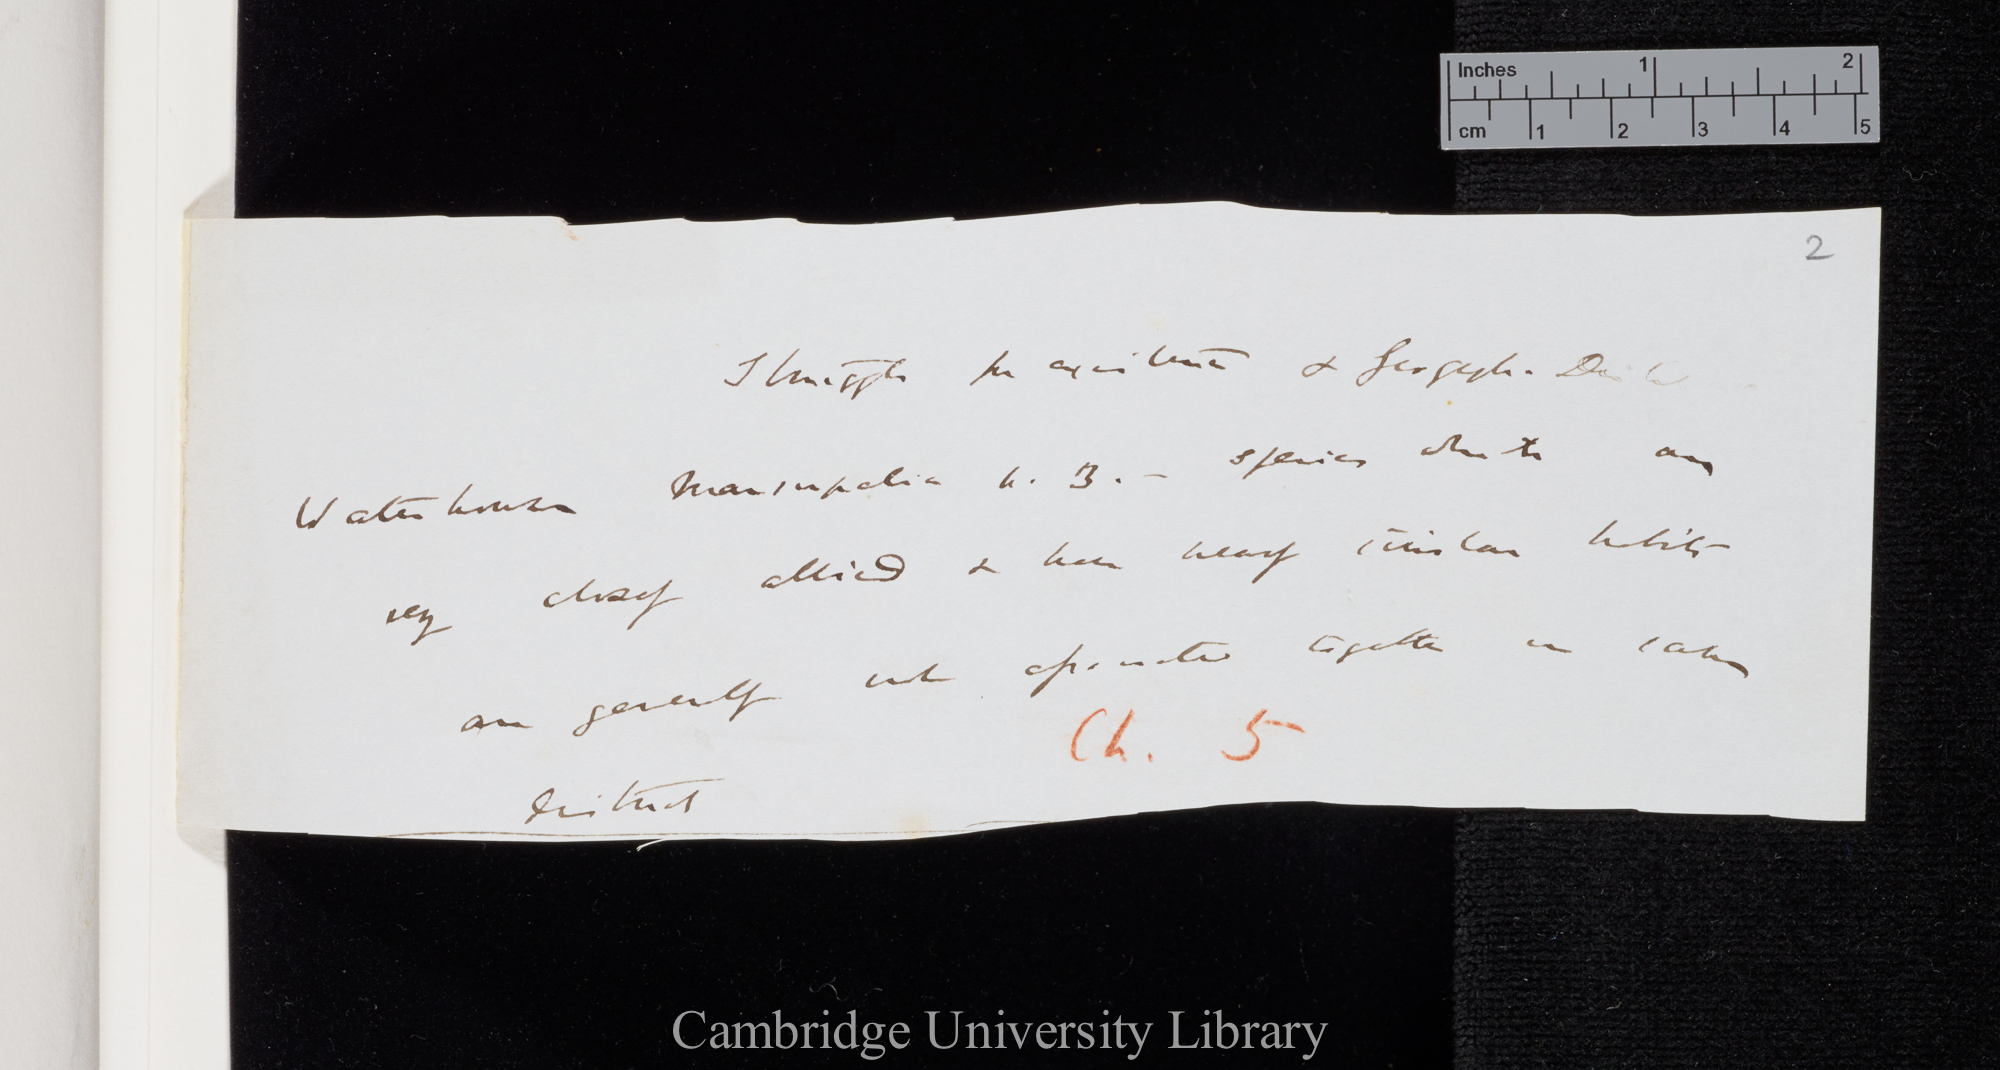 Inches 1 2
cm 1 2 3 4 5
2
Struggle for existence & Geograph. Dist
Waterhouse Marsupalia h. B. – species which are
very closely allied & have nearly similar habits
are generally not associated together in same
district
Ch. 5
Cambridge University Library